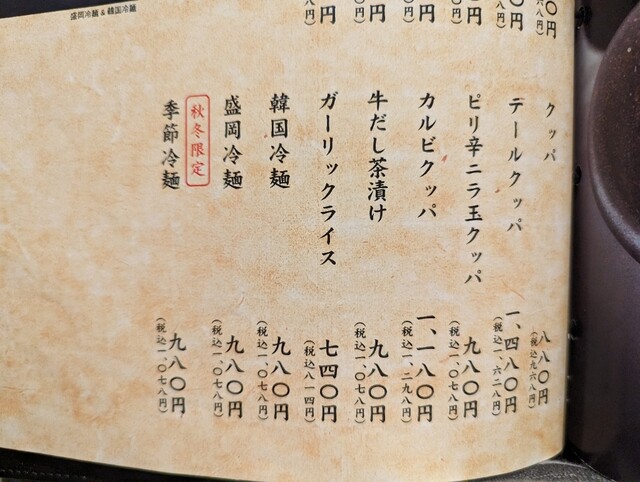 盛岡冷麺 & 韓国冷麺
クッパ
八八〇円
(税込九六八円)
テールクッパ
一、四八〇円
(税込一、六二八円)
ピリ辛ニラ玉クッパ
九八〇円
(税込一、〇七八円)
カルビクッパ
一、一八〇円
(税込一、二九八円)
牛だし茶漬け
九八〇円
(税込一、〇七八円)
ガーリックライス
七四〇円
(税込八一四円)
韓国冷麺
九八〇円
(税込一、〇七八円)
盛岡冷麺
九八〇円
(税込一、〇七八円)
秋冬限定
季節冷麺
九八〇円
(税込一、〇七八円)